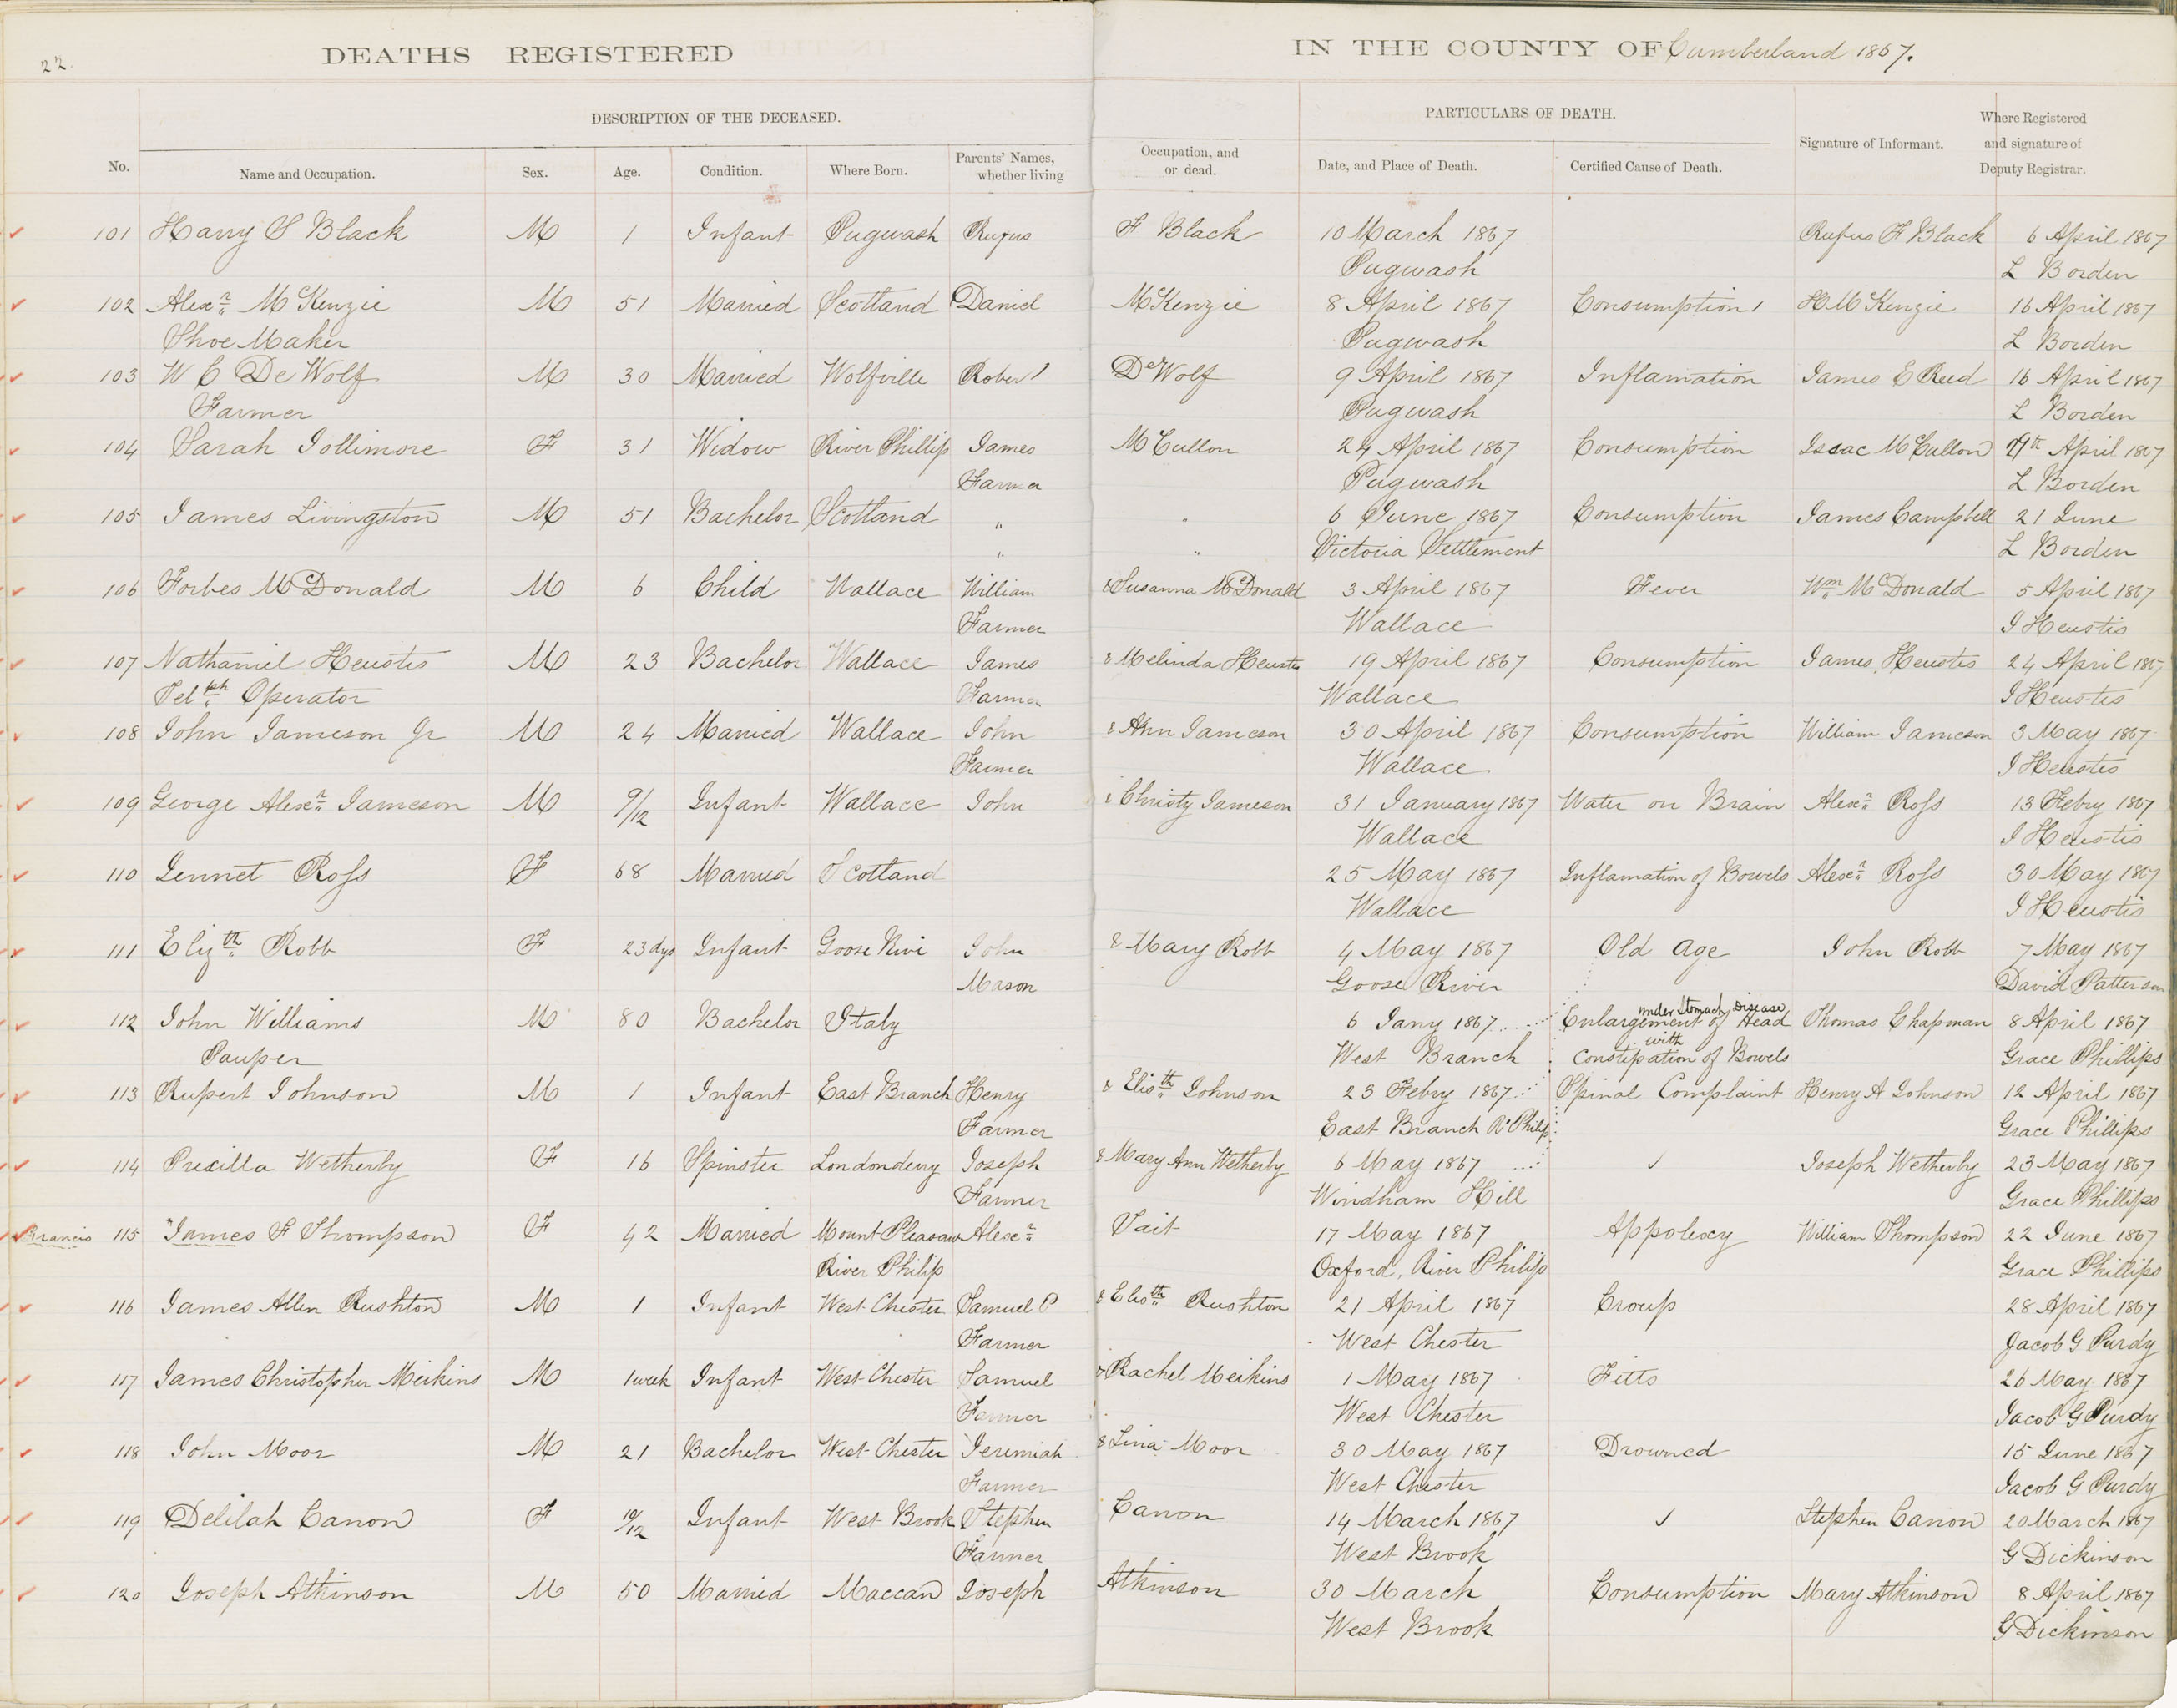 22.
DEATHS REGISTERED IN THE COUNTY OF Cumberland 1867.
DESCRIPTION OF THE DECEASED. PARTICULARS OF DEATH.
No. Name and Occupation. Sex. Age. Condition. Where Born. Parents' Names, whether living Occupation, and or dead. Date, and Place of Death. Certified Cause of Death. Signature of Informant. Where Registered and signature of Deputy Registrar.
101 Harry S Black M 1 Infant Pugwash Rufus F Black 10 March 1867 Rufus F Black 6 April 1867
Pugwash L Borden
102 Alexr McKenzie M 51 Married Scotland Daniel McKenzie 8 April 1867 Consumption H McKenzie 16 April 1867
Shoe Maker Pugwash L Borden
103 W C De Wolf M 30 Married Wolfville Robert DeWolf 9 April 1867 Inflamation James E Reed 16 April 1867
Farmer Pugwash L Borden
104 Sarah Jollimore F 31 Widow River Phillip James McCullon 24 April 1867 Consumption Isaac McCullon April 1867
Farmer Pugwash L Borden
105 James Livingston M 51 Bachelor Scotland " " 6 June 1867 Consumption James Campbell 21 June
" " Victoria Settlement L Borden
106 Forbes McDonald M 6 Child Wallace William & Susanna McDonald 3 April 1867 Fever Wm McDonald 5 April 1867
Farmer Wallace I Heustis
107 Nathaniel Heustis M 23 Bachelor Wallace James & Melinda Heustis 19 April 1867 Consumption James Heustis 24 April 1867
Telph Operator Farmer Wallace I Heustis
108 John Jameson Jr M 24 Married Wallace John & Ann Jameson 30 April 1867 Consumption William Jameson 3 May 1867
Farmer Wallace I Heustis
109 George Alexr Jameson M 9/12 Infant Wallace John & Christy Jameson 31 January 1867 Water on Brain Alexr Ross 13 Febry 1867
Wallace I Heustis
110 Jennet Ross F 68 Married Scotland 25 May 1867 Inflamation of Bowels Alexr Ross 30 May 1867
Wallace I Heustis
111 Elizth Robb F 23 dys Infant Goose Rivi John & Mary Robb 4 May 1867 Old age John Robb 7 May 1867
Mason Goose River David Patterson
112 John Williams M 80 Bachelor Italy 6 Jany 1867 Enlargement of Head under Stomach Disease Thomas Chapman 8 April 1867
Pauper West Branch with Constipation of Bowels Grace Phillips
113 Rupert Johnson M 1 Infant East Branch Henry & Elisth Johnson 23 Febry 1867 Spinal Complaint Henry A Johnson 12 April 1867
Farmer East Branch Rr Philip Grace Phillips
114 Prexilla Wetherby F 16 Spinster Londonderry Joseph & Mary Ann Wetherby 6 May 1867 ✓ Joseph Wetherby 23 May 1867
Farmer Windham Hill Grace Phillips
Francis 115 "James F Thompson F 42 Married Mount Pleasant Alexr Tait 17 May 1867 Appolexy William Thompson 22 June 1867
River Philip Oxford, River Philip Grace Phillips
116 James Allen Rushton M 1 Infant West Chester Samuel P & Elisth Rushton 21 April 1867 Croup 28 April 1867
Farmer West Chester Jacob G Purdy
117 James Christopher Meikins M 1 week Infant West Chester Samuel & Rachel Meikins 1 May 1867 Fitts 26 May 1867
Farmer West Chester Jacob G Purdy
118 John Moor M 21 Bachelor West Chester Jeremiah & Lina Moor 30 May 1867 Drowned 15 June 1867
Farmer West Chester Jacob G Purdy
119 Delilah Canon F 10/12 Infant West Brook Stephen Canon 14 March 1867 ✓ Stephen Canon 20 March 1867
Farmer West Brook G Dickinson
120 Joseph Atkinson M 50 Married Maccan Joseph Atkinson 30 March Consumption Mary Atkinson 8 April 1867
West Brook G Dickinson